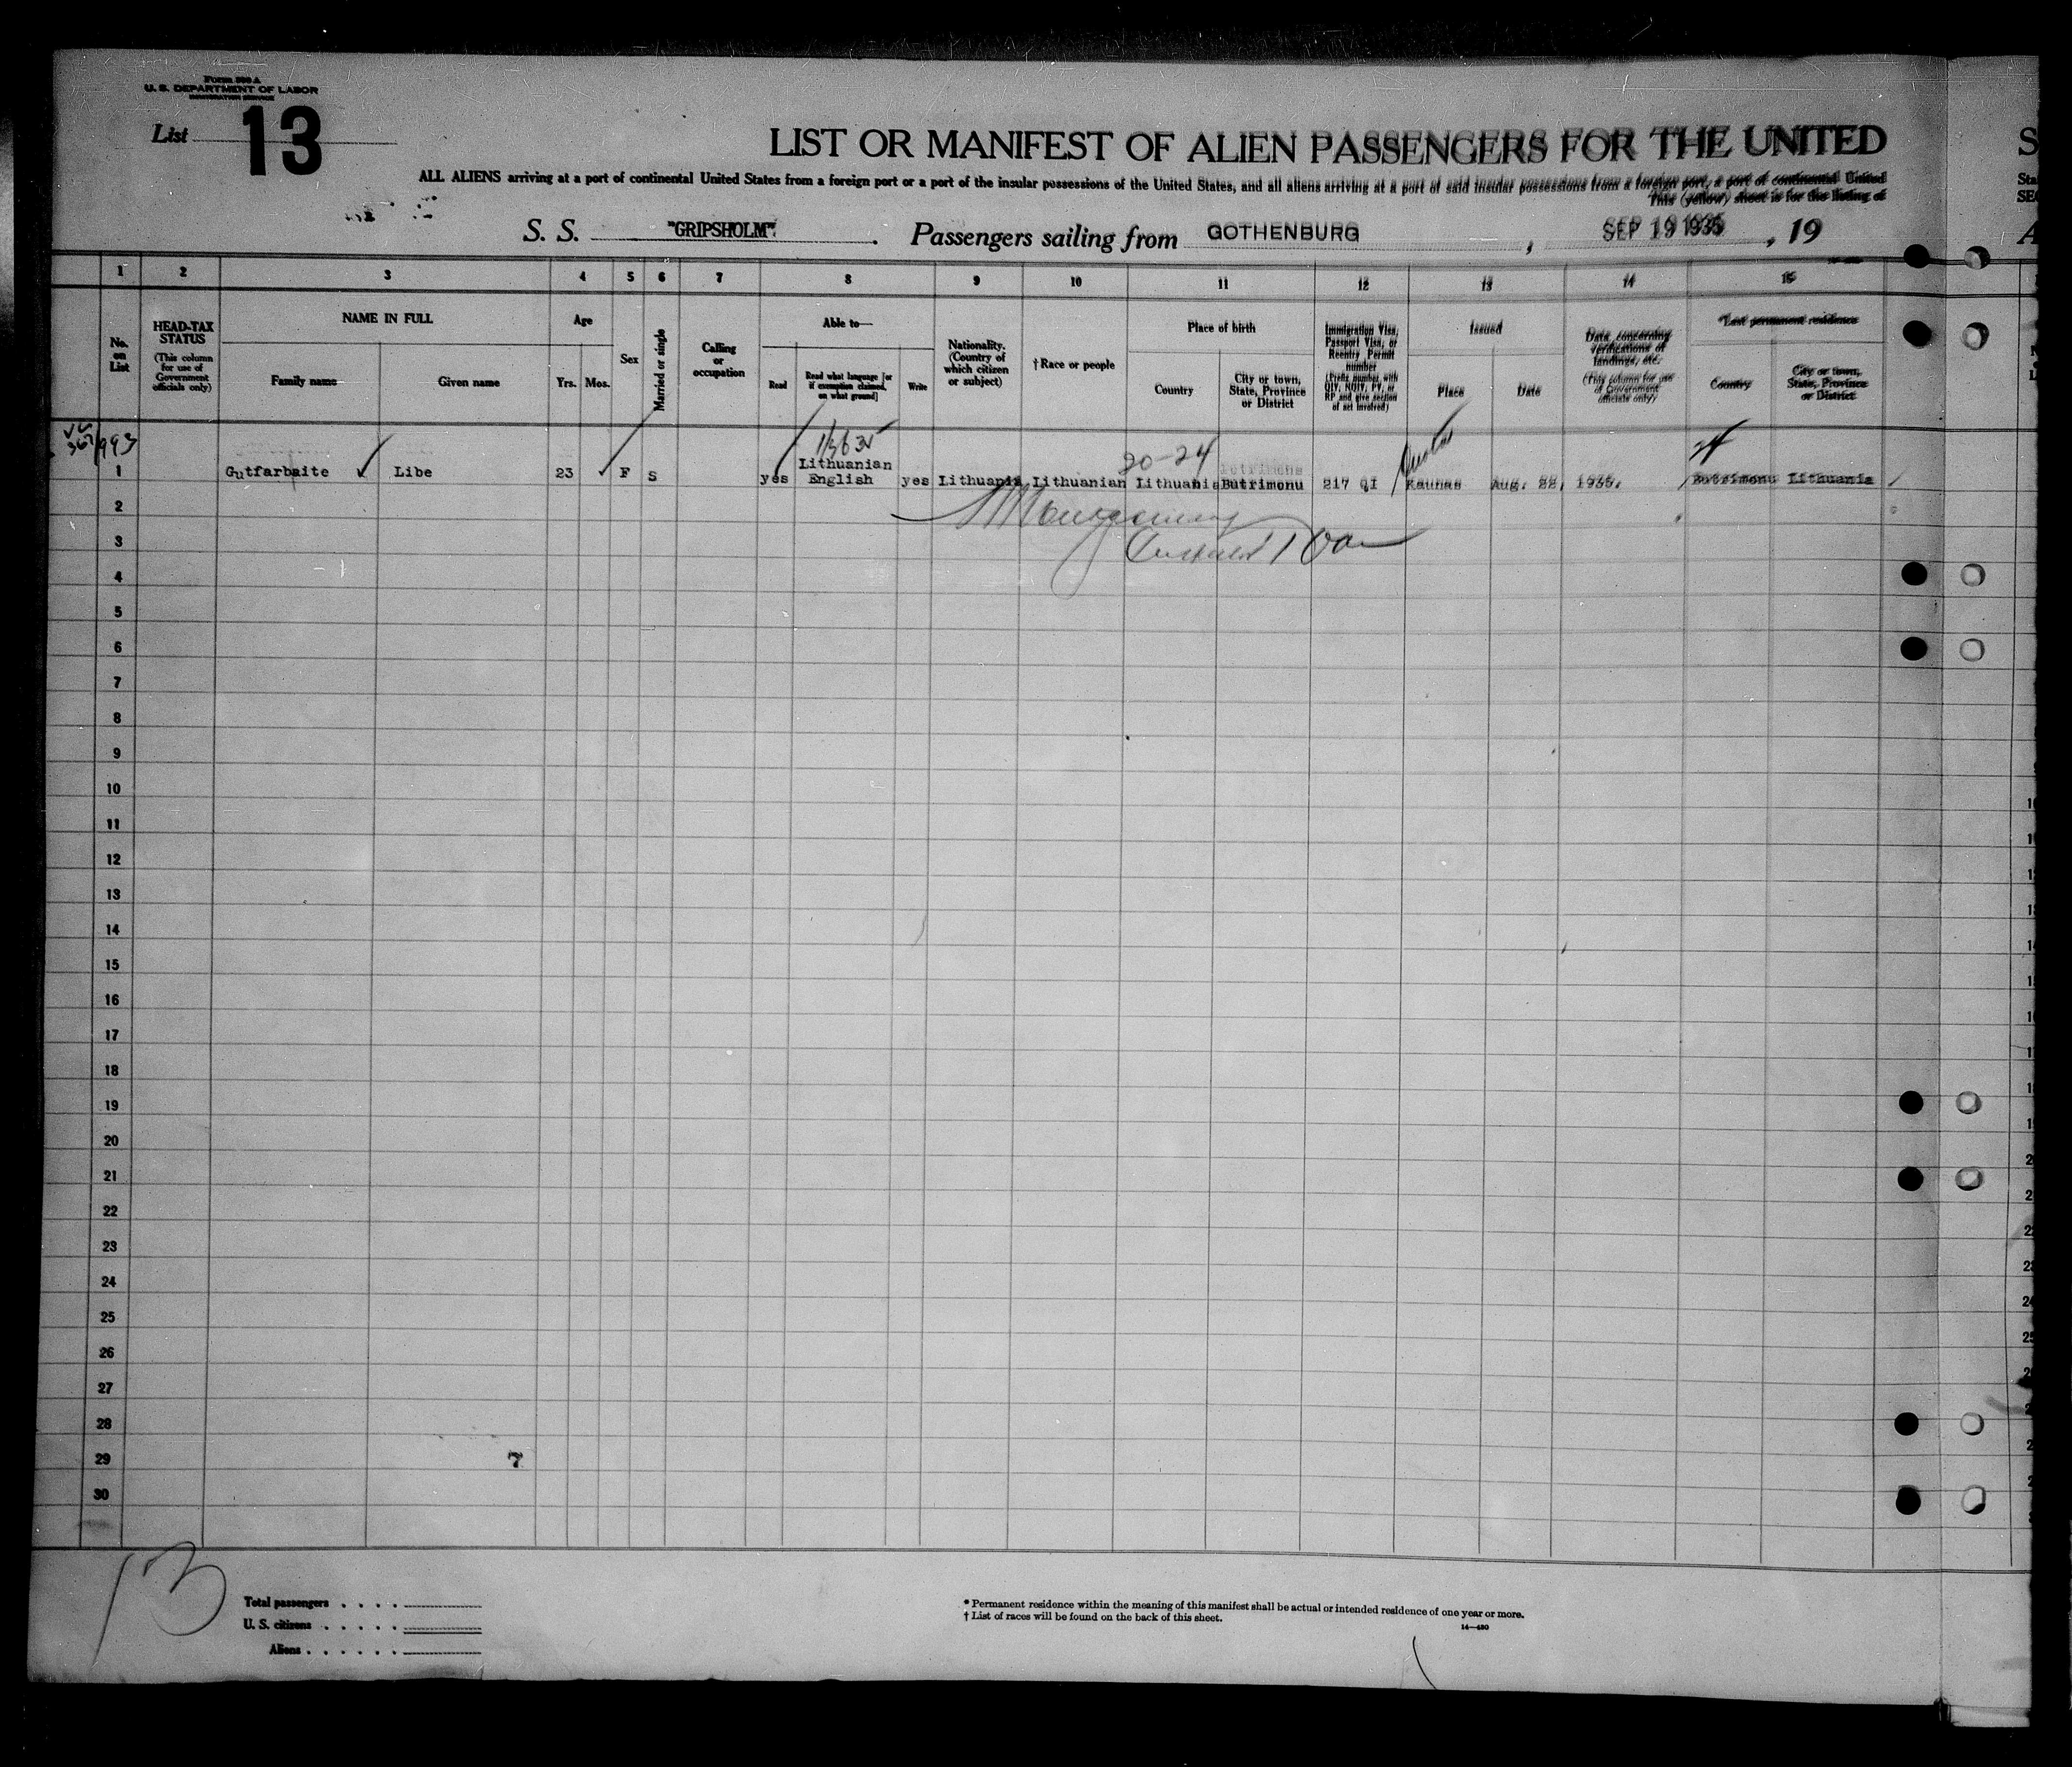 Form 500 A
U. S. DEPARTMENT OF LABOR
IMMIGRATION SERVICE
List 13
LIST OR MANIFEST OF ALIEN PASSENGERS FOR THE UNITED
ALL ALIENS arriving at a port of continental United States from a foreign port or a port of the insular possessions of the United States, and all aliens arriving at a port of said insular possessions from a foreign port, a port of continental United
This (yellow) sheet is for the listing of
S. S. "GRIPSHOLM". Passengers sailing from GOTHENBURG, SEP 19 1935, 19
S
Sta
SEC
A
1 2 3 4 5 6 7 8 9 10 11 12 13 14 15
No. on List
HEAD-TAX STATUS
(This column for use of Government officials only)
NAME IN FULL
Family name
Given name
Age
Yrs. Mos.
Sex
Married or single
Calling or occupation
Able to—
Read
Read what language [or if exemption claimed, on what ground]
Write
Nationality. (Country of which citizen or subject)
† Race or people
Place of birth
Country
City or town, State, Province or District
Immigration Visa, Passport Visa, or Reentry Permit number
(Prefix number with QIV, NQIV, PV, or RP and give section of act involved)
Issued
Place
Date
Data concerning verifications of landings, etc.
(This column for use of Government officials only)
*Last permanent residence
Country
City or town, State, Province or District
367/993
20-24
1 Gutfarbaite Libe 23 F S yes Lithuanian English yes Lithuania Lithuanian Lithuania Butrimonu 217 QI Kaunas Aug. 22, 1935. Butrimonu Lithuania
2
3
4
5
6
7
8
9
10
11
12
13
14
15
16
17
18
19
20
21
22
23
24
25
26
27
28
29
7
30
13
Total passengers . . . .
U. S. citizens . . . . .
Aliens . . . . . .
* Permanent residence within the meaning of this manifest shall be actual or intended residence of one year or more.
† List of races will be found on the back of this sheet.
14—480